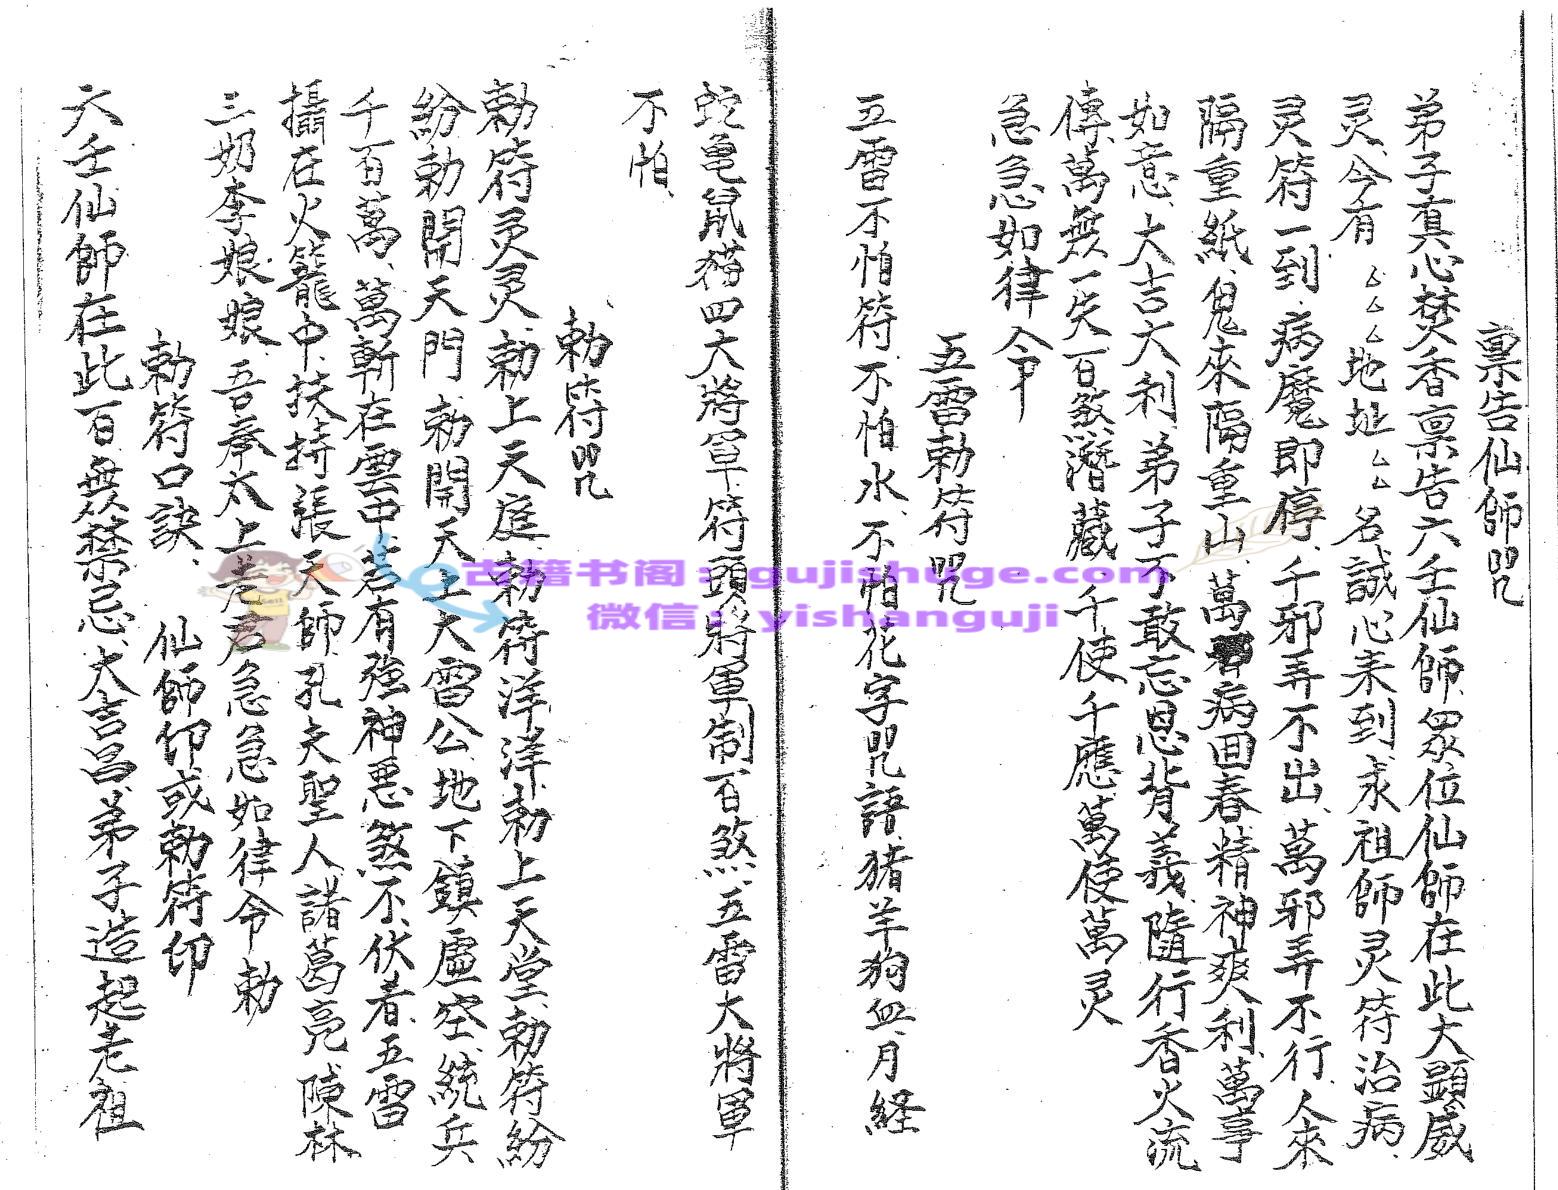 禀告仙師咒
弟子真心焚香禀告六壬仙師眾位仙師在此大顕威
灵今有厶厶厶地址厶厶名誠心来到求祖師灵符治病
灵符一到病魔即停千邪弄不出萬邪弄不行人來
隔重紙鬼來隔重山萬病回春精神爽利萬事
如意大吉大利弟子不敢忘恩背義隨行香火流
傳萬無一失百煞潛藏千使千應萬使萬灵
急急如律令
五雷勅符咒
五雷不怕符不怕水不怕花字咒語猪羊狗血月経
蛇龟鼠猫四大將軍符頭將軍制百煞五雷大將軍
不怕
勅符咒
勅符灵灵勅上天庭勅符洋洋勅上天堂勅符紛
紛勅開天門勅開天上大雷公地下鎮虛空統兵
千百萬萬斬在雲中若有強神惡煞不伏者五雷
攝在火籠中扶持張天師孔夫聖人諸葛亮陳林
三奶李娘娘吾奉太上老君急急如律令勅
勅符口訣仙師印或勅符印
六壬仙師在此百無禁忌大吉昌弟子造起老祖
古籍书阁：gujishuge.com
微信：yishanguji